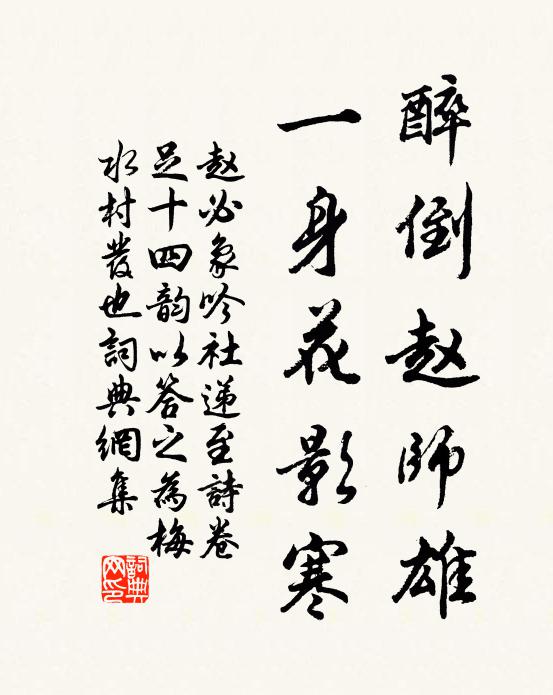 醉倒赵师雄
一身花影寒
赵必象吟社递至詩卷
足十四韵以答之為梅
水村發也詞典網集
詞典網印